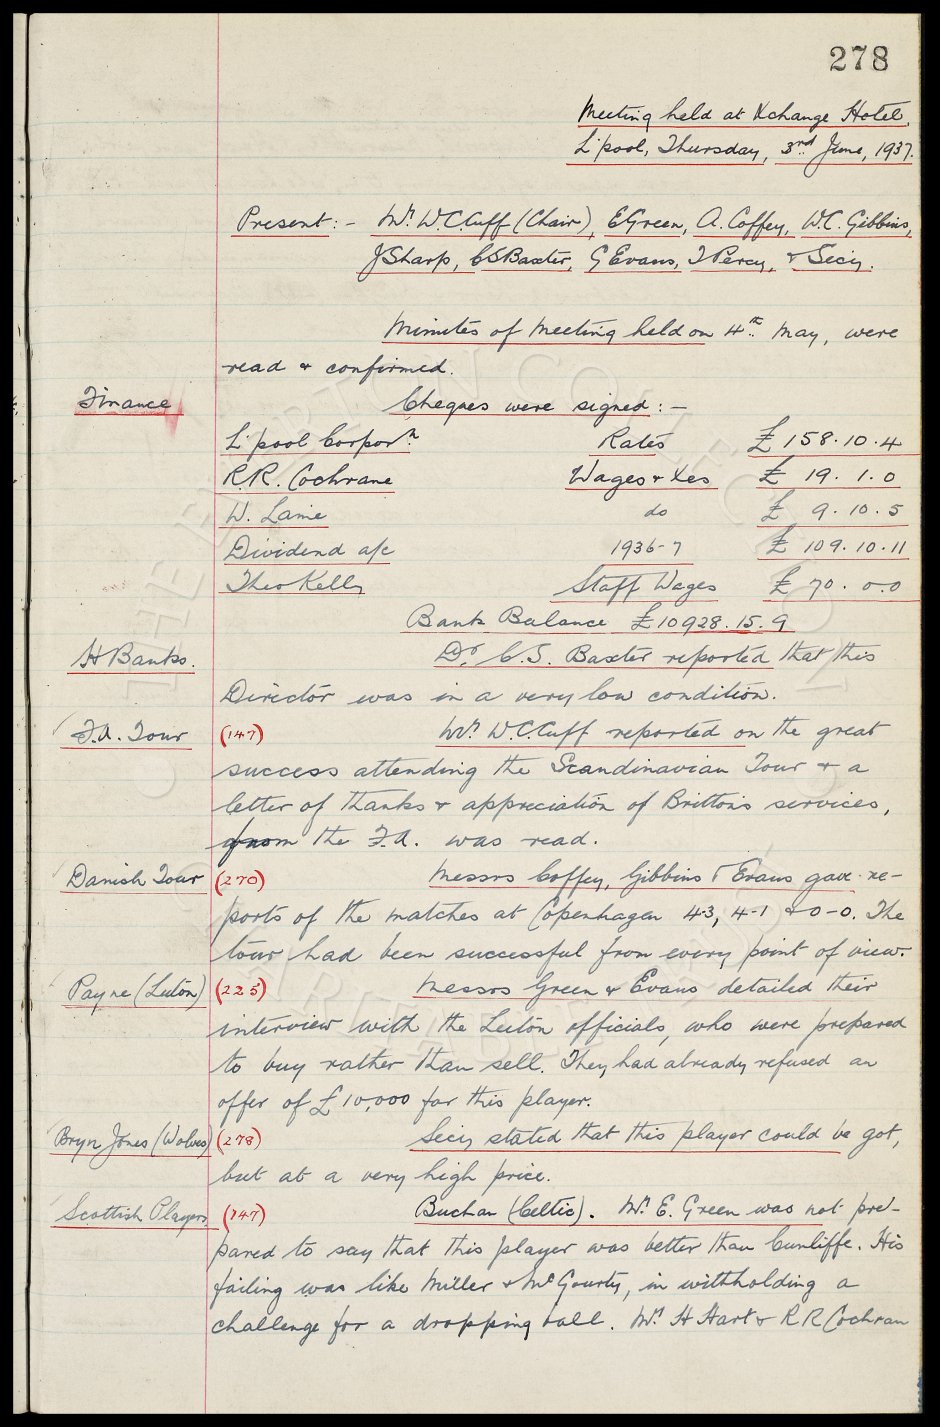 278
Meeting held at Xchange Hotel,
L'pool, Thursday, 3rd June, 1937.
Present:- Mr. W.C. Cuff (Chair), E Green, A. Coffey, W.C. Gibbins,
J Sharp, C S Baxter, G Evans, T Percy, & Secy.
Minutes of meeting held on 4th May, were
read & confirmed.
Finance Cheques were signed:-
L'pool Corporn Rates £158.10.4
R.R. Cochrane Wages & Xes £ 19. 1. 0
W. Laine do £ 9.10.5
Dividend a/c 1936-7 £109.10.11
Theo Kelly Staff Wages £ 70. 0.0
Bank Balance £10928.15.9
H Banks. Dr. C.S. Baxter reported that this
Director was in a very low condition.
F.A. Tour (147) Mr. W.C. Cuff reported on the great
success attending the Scandinavian Tour & a
letter of thanks & appreciation of Britton's services,
from the F.A. was read.
Danish Tour (270) Messrs Coffey, Gibbins & Evans gave re-
ports of the matches at Copenhagen 4-3, 4-1 & 0-0. The
tour had been successful from every point of view.
Payne (Luton) (225) Messrs Green & Evans detailed their
interview with the Luton officials, who were prepared
to buy rather than sell. They had already refused an
offer of £10,000 for this player.
Bryn Jones (Wolves) (278) Secy stated that this player could be got,
but at a very high price.
Scottish Players (147) Buchan (Celtic). Mr. E. Green was not pre-
pared to say that this player was better than Cunliffe. His
failing was like Miller & McGourty, in withholding a
challenge for a dropping ball. Mr. H Hart & R R Cochran